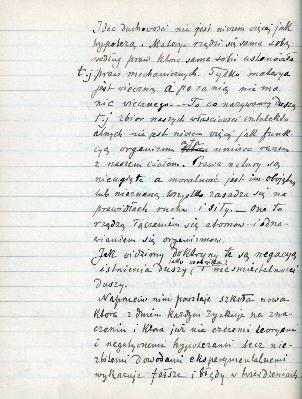 Idea duchowości nie jest niczem więcej jak
hypotezą. Materya rządzi się sama sobą
według praw które sama sobie ustanowiła
t.j. praw mechanicznych. Tylko materya
jest wieczną a po za nią nie ma
nic wiecznego. — To co nazywamy duszą
t.j. zbiór naszych właściwości intelektu
alnych nie jest niczem więcej jak funk
cyą organizmu a ta umiera razem
z naszem ciałem. Prawa natury są
nieugięte a moralność jest im obojętną
lub nieznaną. Wszystko zasadza się na
prawidłach ruchu i siły. — One to
rządzą łączeniem się atomów i
się organizmów.
Jak widzimy doktryny te są negacyą
istnienia duszy, i nieśmiertelności
duszy.
Naprzeciw nim powstaje szkoła nowa
która z dniem każdym zyskuje na zna
czeniu i która już nie czczemi teoryami
i negatywnemi hypotezami lecz nie-
zbitemi dowodami eksperymentalnemi
wykazuje fałsze i błędy w twierdzeniach